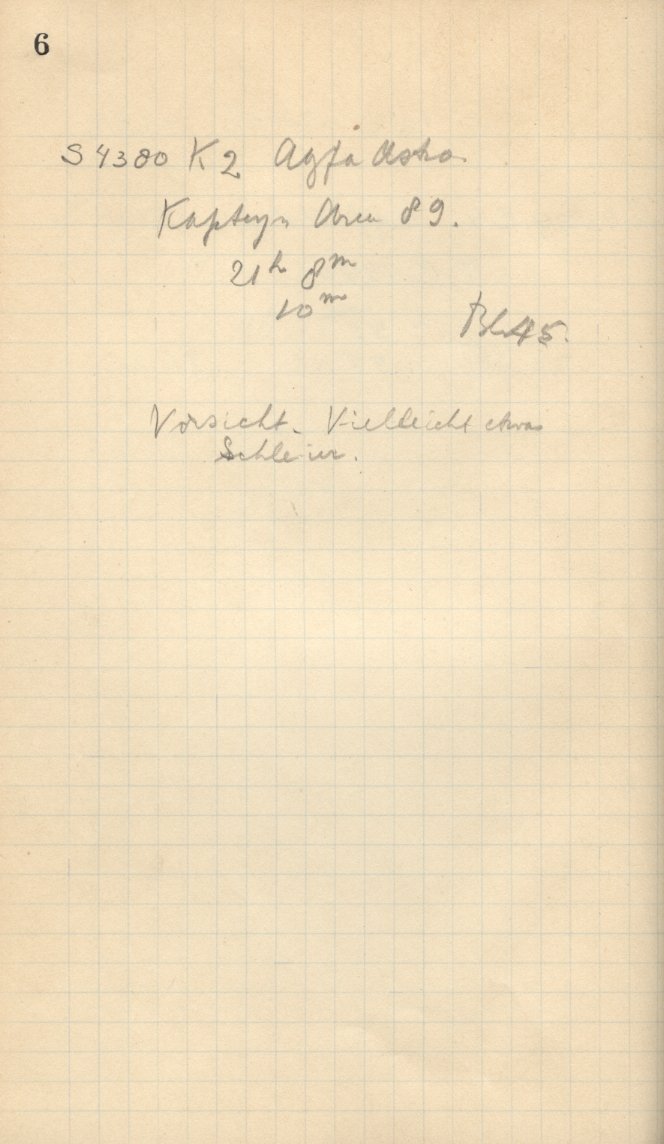 6
S 4380 K2 Agfa Astro
Kapteyn Area 89.
21h 8m
10m
Bl. 45.
Vorsicht. Vielleicht etwas
Schleier.